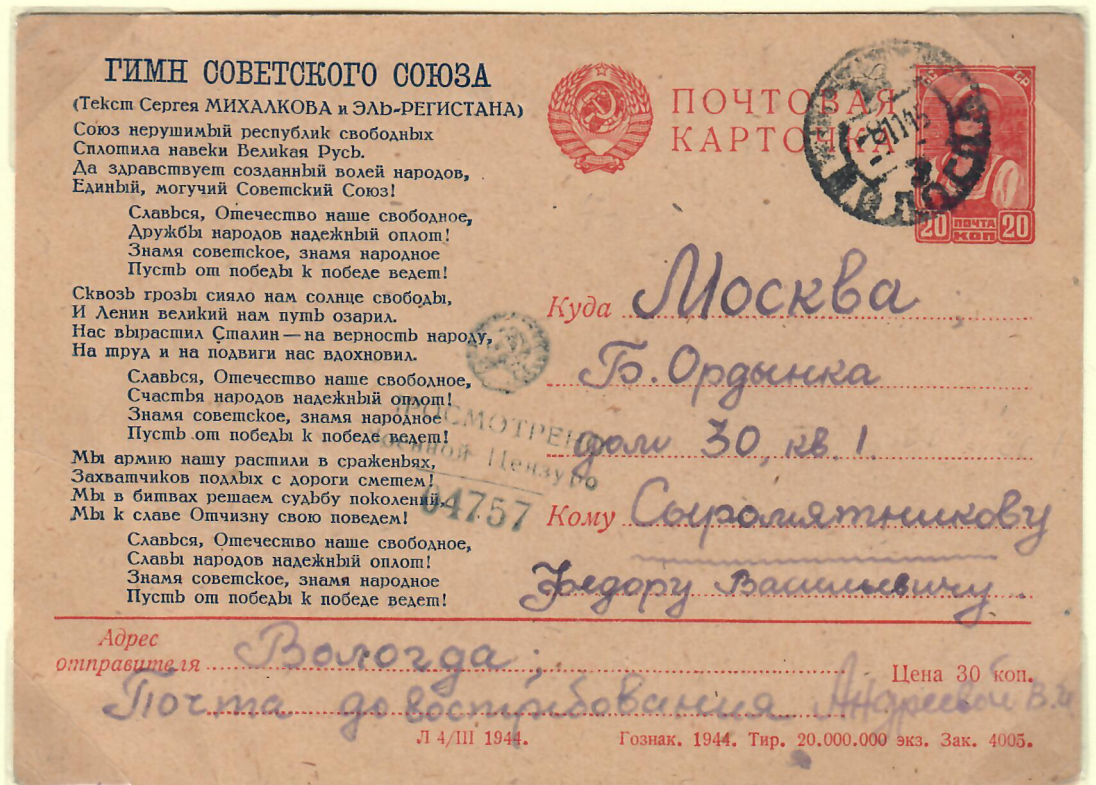 ГИМН СОВЕТСКОГО СОЮЗА
(Текст Сергея МИХАЛКОВА и ЭЛЬ-РЕГИСТАНА)
Союз нерушимый республик свободных
Сплотила навеки Великая Русь.
Да здравствует созданный волей народов,
Единый, могучий Советский Союз!
Славься, Отечество наше свободное,
Дружбы народов надежный оплот!
Знамя советское, знамя народное
Пусть от победы к победе ведет!
Сквозь грозы сияло нам солнце свободы,
И Ленин великий нам путь озарил.
Нас вырастил Сталин — на верность народу,
На труд и на подвиги нас вдохновил.
Славься, Отечество наше свободное,
Счастья народов надежный оплот!
Знамя советское, знамя народное
Пусть от победы к победе ведет!
Мы армию нашу растили в сраженьях,
Захватчиков подлых с дороги сметем!
Мы в битвах решаем судьбу поколений,
Мы к славе Отчизну свою поведем!
Славься, Отечество наше свободное,
Славы народов надежный оплот!
Знамя советское, знамя народное
Пусть от победы к победе ведет!
ПОЧТОВАЯ
КАРТОЧКА
20 ПОЧТА КОП 20
ПРОСМОТРЕНО
Военной Цензуро
04757
Куда Москва
Б. Ордынка
дом 30, кв. 1.
Кому Сыромятникову
Федору Васильевичу.
Адрес
отправителя Вологда;
Почта до востребования Андреевой В.И
Цена 30 коп.
Л 4/III 1944.
Гознак. 1944. Тир. 20.000.000 экз. Зак. 4005.